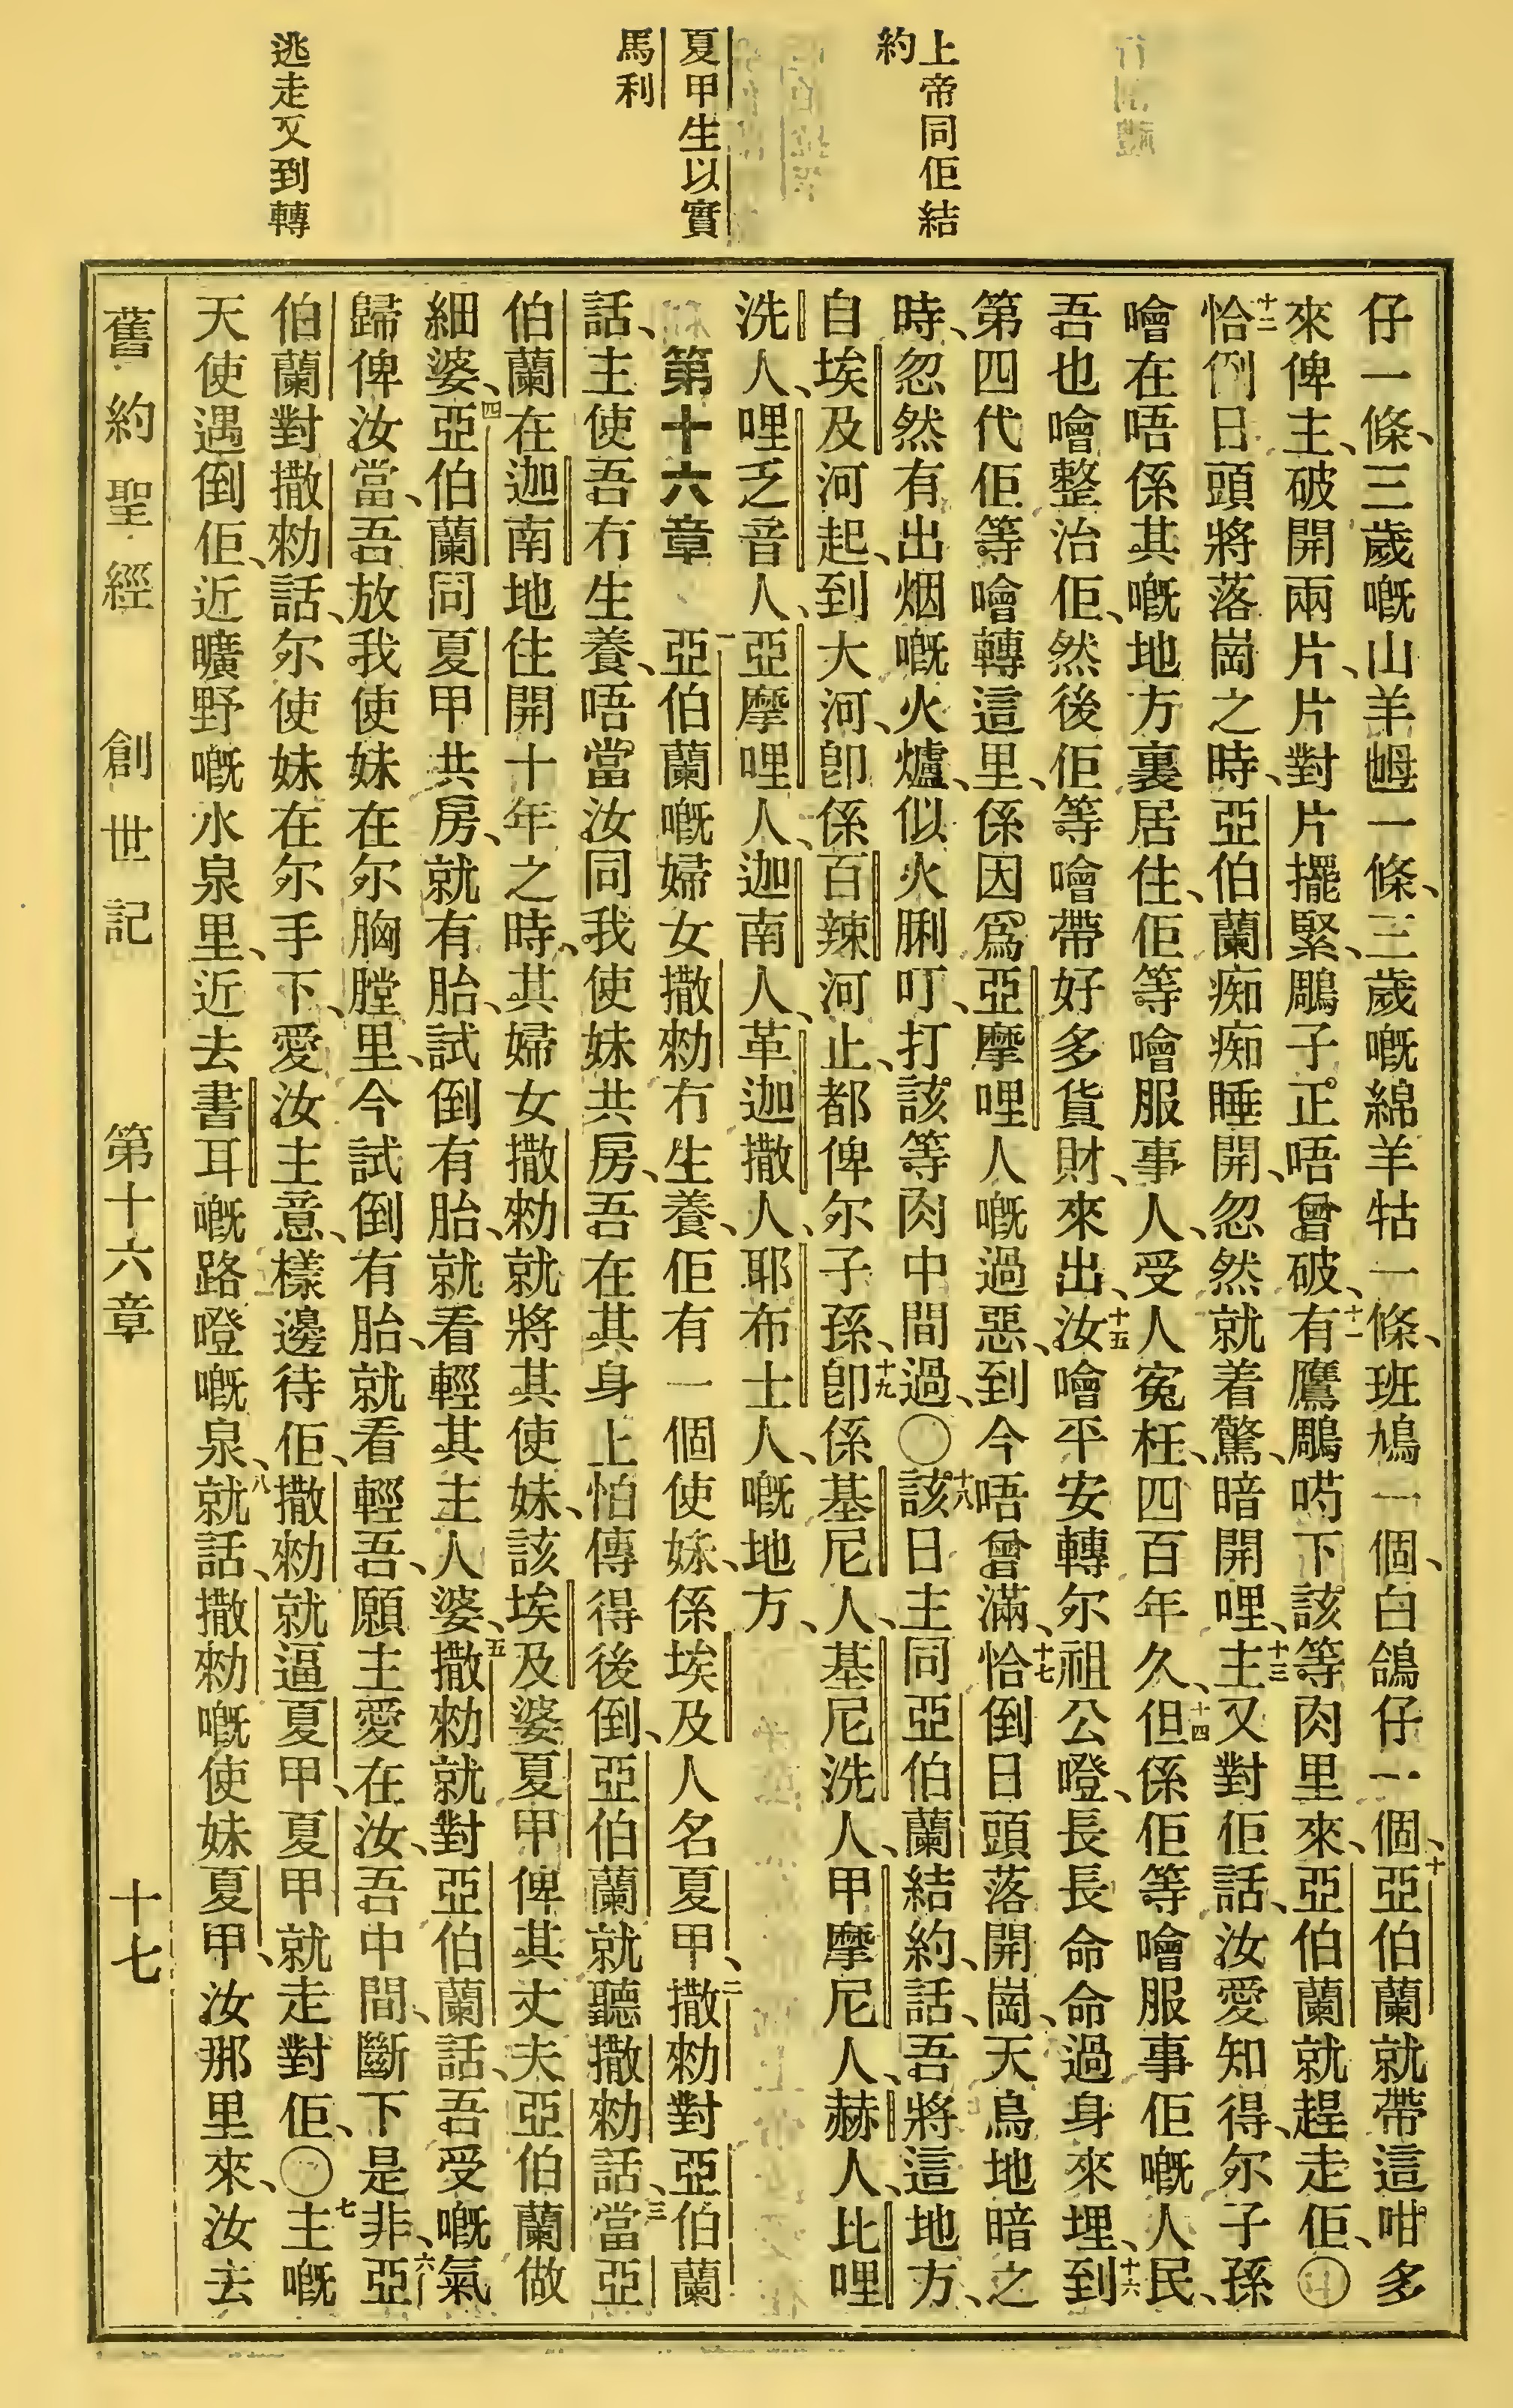 上帝同佢結
約
夏甲生以實
馬利
逃走又到轉
仔一條、三歲嘅山羊𡜵一條、三歲嘅綿羊牯一條、班鳩一個、白鴿仔一個、十亞伯蘭就帶這咁多
來俾主、破開兩片、片對片擺緊、鵰子正唔曾破、十一有鷹鵰㖼下該等肉里來、亞伯蘭就趕走佢、〇
十二恰例日頭將落崗之時、亞伯蘭痴痴睡開、忽然就着驚、暗開哩、十三主又對佢話、汝愛知得、尔子孫
噲在唔係其嘅地方裏居住、佢等噲服事人、受人寃枉、四百年久、十四但係佢等噲服事佢嘅人民、
吾也噲整治佢、然後佢等噲帶好多貨財、來出、十五汝噲平安轉尔祖公嶝、長長命命過身來埋、十六到
第四代佢等噲轉這里、係因爲亞摩哩人嘅過惡、到今唔曾滿、十七恰倒日頭落開崗、天烏地暗之
時、忽然有出烟嘅火爐、似火脷叮、打該等肉中間過、〇十八該日主同亞伯蘭結約、話、吾將這地方、
自埃及河起、到大河、卽係百辣河止、都俾尔子孫、十九卽係基尼人、基尼洗人、甲摩尼人、赫人、比哩
洗人、哩乏音人、亞摩哩人、迦南人、革迦撒人、耶布士人、嘅地方、
第十六章 一亞伯蘭嘅婦女撒勑冇生養、佢有一個使妹、係埃及人名夏甲、二撒勑對亞伯蘭
話、主使吾冇生養、唔當汝同我使妹共房、吾在其身上怕傳得後倒、亞伯蘭就聽撒勑話、三當亞
伯蘭在迦南地住開十年之時、其婦女撒勑就將其使妹、該埃及婆夏甲俾其丈夫亞伯蘭做
細婆、四亞伯蘭同夏甲共房、就有胎、試倒有胎、就看輕其主人婆、五撒勑就對亞伯蘭話、吾受嘅氣
歸俾汝當、吾放我使妹在尔胸膛里、今試倒有胎、就看輕吾、願主愛在汝、吾中間、斷下是非、六亞
伯蘭對撒勑話、尔使妹在尔手下、愛汝主意、樣邊待佢、撒勑就逼夏甲、夏甲就走對佢、〇七主嘅
天使遇倒佢、近曠野嘅水泉里、近去書耳嘅路嶝嘅泉、八就話、撒勑嘅使妹夏甲、汝那里來、汝去
舊約聖經 創世記 第十六章 十七